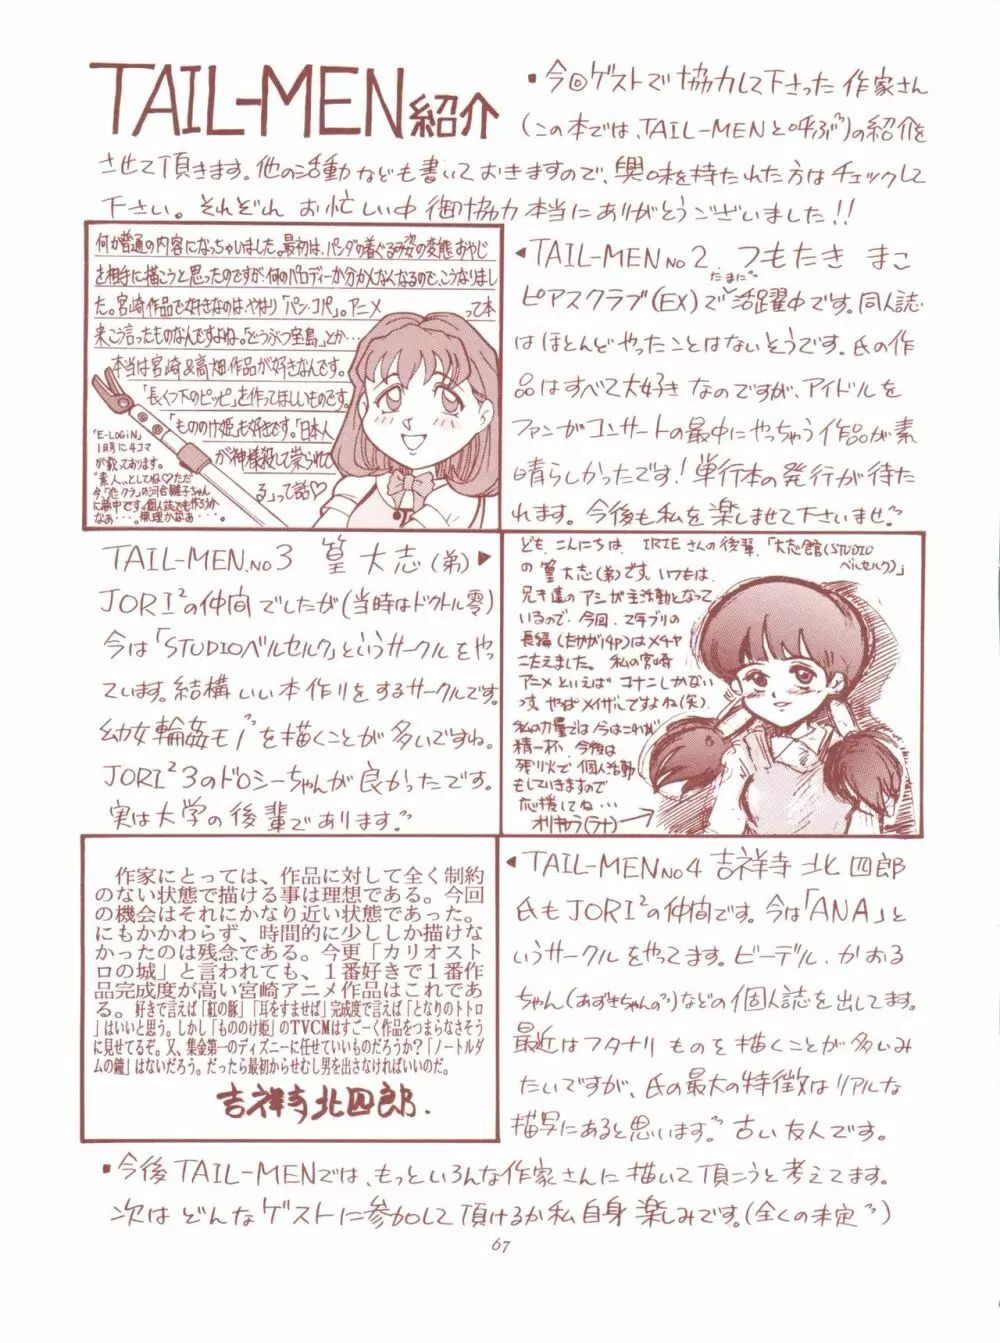 TAIL-MEN紹介
・今回ゲストで協力して下さった作家さん
(この本では、TAIL-MENと呼ぶ)の紹介を
させて頂きます。他の活動なども書いておきますので、興味を持たれた方はチェックして
下さい。それぞれ お忙しい中 御協力 本当にありがとうございました!!
何か普通の内容になっちゃいました。最初は、パンダの着ぐるみ姿の変態おやじ
を相手に描こうと思ったのですが、何のパロディーか分かんなくなるので、こうなりまし
た。宮崎作品で好きなのは、やはり「パン・コパ」。アニメって本
来こう言ったものなんですよね。「どうぶつ宝島」とか…
本当は宮崎&高畑作品が好きなんです。
「長くつ下のピッピ」を作ってほしいものです。
「もののけ姫」も好きです。「日本人
が神様殺して祟られて
る」って話♡
「E-LOGiN」
1月号に4コマ
が載っております。
"素人"としてね♡ただ
今「恋クラ」の河合雛子ちゃん
に夢中です。個人誌でも作ろうか
なあ・・・。無理かなぁ・・・。
◀TAIL-MEN No2. つもたき まこ
ピアスクラブ(EX)でたまに活躍中です。同人誌
はほとんどやったことはないそうです。氏の作
品はすべて大好きなのですが、アイドルを
ファンがコンサートの最中にやっちゃう作品が素
晴らしかったです!単行本の発行が待た
れます。今後も私を楽しませて下さいませ。
TAIL-MEN.No3 篁 大志(弟)▶
JORI²の仲間でしたが(当時はドクトル零)
今は「STUDIOベルセルク」というサークルをやっ
ています。結構いい本作りをするサークルです。
幼女輪姦モノを描くことが多いですね。
JORI²3のドロシーちゃんが良かったです。
実は大学の後輩であります。
ども、こんにちは、IRIEさんの後輩、「大志館(STUDIO
ベルセルク)」
の篁大志(弟)です。いつもは、
兄き達のアシが主活動となって
いるので、今回、2年ブリの
長編(たかが14P)はメチャ
こたえました。私の宮崎
アニメといえば コナンしかない
っす。やっぱメイザルですよね(笑)。
私の力量では今はこれが
精一杯、今後は
残り火で個人活動
もしていきますので
応援してね…
オリキャラ(ラナ)→
作家にとっては、作品に対して全く制約
のない状態で描ける事は理想である。今回
の機会はそれにかなり近い状態であった。
にもかかわらず、時間的に少ししか描けな
かったのは残念である。今更「カリオスト
ロの城」と言われても、1番好きで1番作
品完成度が高い宮崎アニメ作品はこれであ
る。好きで言えば「紅の豚」「耳をすませば」完成度で言えば「となりのトトロ
」はいいと思う。しかし「もののけ姫」のTVCMはすごーく作品をつまらなさそう
に見せてるぞ。又、集金第一のディズニーに任せていいものだろうか?「ノートルダ
ムの鐘」はないだろう。だったら最初からせむし男を出さなければいいのだ。
吉祥寺北四郎.
◀TAIL-MEN No4 吉祥寺 北四郎
氏もJORI²の仲間です。今は「ANA」と
いうサークルをやってます。ビーデル、かおる
ちゃん(あずきちゃんの)などの個人誌を出してます。
最近はフタナリものを描くことが多いみ
たいですが、氏の最大の特徴はリアルな
描写にあると思います。古い友人です。
・今後TAIL-MENでは、もっといろんな作家さんに描いて頂こうと考えてます。
次はどんなゲストに参加して頂けるか私自身楽しみです。(全くの未定)
67